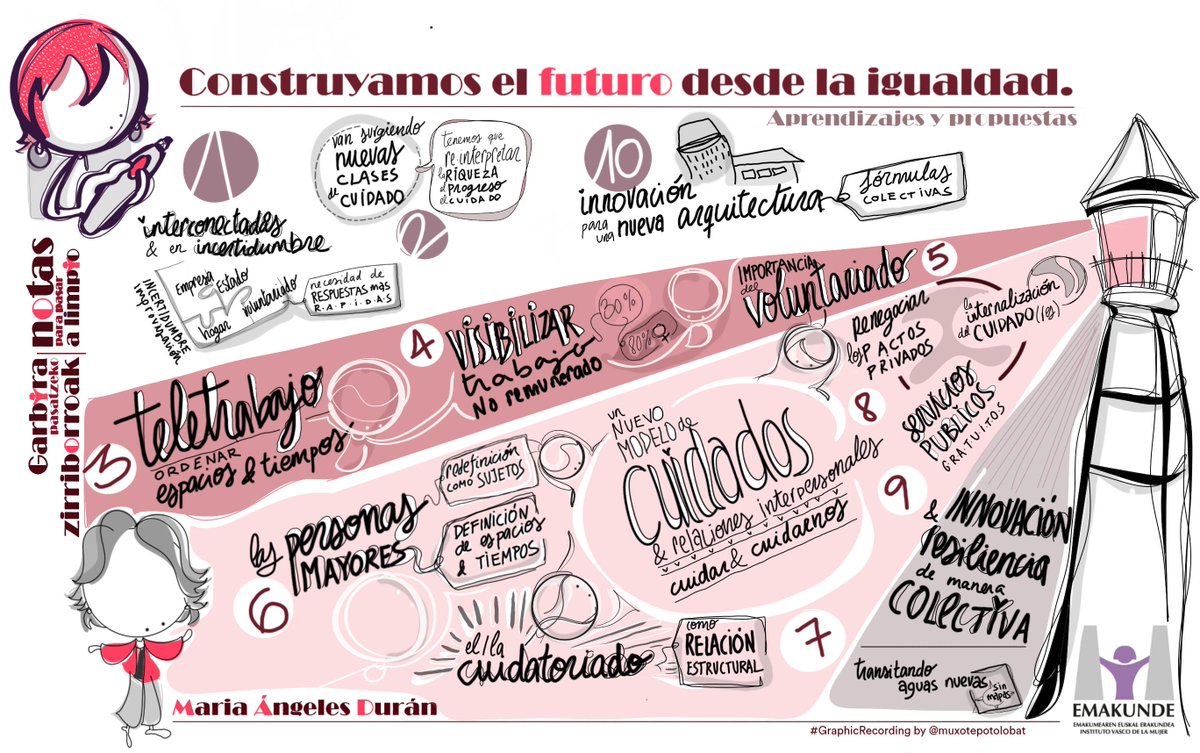 Construyamos el futuro desde la igualdad.
Aprendizajes y propuestas
Garbira
pasatzeko
zirriborroak
notas
para pasar
a limpio
1
interconectadas
& en incertidumbre
INCERTIDUMBRE
improvisación
Empresa
Estado
hogar
voluntariado
necesidad de
RESPUESTAS MÁS
R.A.P.I.D.A.S
van surgiendo
nuevas
CLASES
de
CUIDADO
tenemos que
re-interpretar
la RIQUEZA
el PROGRESO
el CUIDADO
2
10
innovación
para
una nueva arquitectura
fórmulas
COLECTIVAS
3
teletrabajo
ORDENAR
espacios & tiempos
4
VISIBILIZAR
trabajo
No remunerado
80%
80% ♀
IMPORTANCIA
del
voluntariado
5
6
las personas
MAYORES
redefinición
como SUJETOS
DEFINICIÓN
de espacios
& TIEMPOS
el/la
cuidatoriado
como
RELACIÓN
ESTRUCTURAL
7
un
NUEVO
MODELO de
cuidados
& relaciones interpersonales
cuidar & cuidarnos
8
renegociar
los PACTOS
PRIVADOS
la internalización
del CUIDADO(/es)
servicios
PÚBLICOS
GRATUITOS
9
& INNOVACIÓN
resiliencia
de manera
COLECTIVA
transitando
aguas nuevas
sin
mapas
Maria Ángeles Durán
#GraphicRecording by @muxotepotolobat
EMAKUNDE
EMAKUMEAREN EUSKAL ERAKUNDEA
INSTITUTO VASCO DE LA MUJER